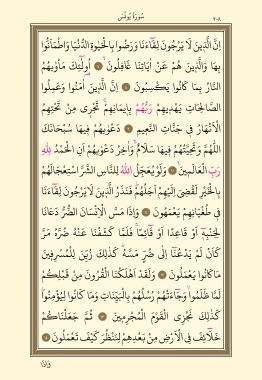 سُورَةُ يُونُسَ
٢٠٨
اِنَّ الَّذٖينَ لَا يَرْجُونَ لِقَٓاءَنَا وَرَضُوا بِالْحَيٰوةِ الدُّنْيَا وَاطْمَاَنُّوا
بِهَا وَالَّذٖينَ هُمْ عَنْ اٰيَاتِنَا غَافِلُونَۙ ۝ اُو۬لٰٓئِكَ مَاْوٰيهُمُ
النَّارُ بِمَا كَانُوا يَكْسِبُونَ ۝ اِنَّ الَّذٖينَ اٰمَنُوا وَعَمِلُوا
الصَّالِحَاتِ يَهْدٖيهِمْ رَبُّهُمْ بِاٖيمَانِهِمْۚ تَجْرٖى مِنْ تَحْتِهِمُ
الْاَنْهَارُ فٖى جَنَّاتِ النَّعٖيمِ ۝ دَعْوٰيهُمْ فٖيهَا سُبْحَانَكَ
اللّٰهُمَّ وَتَحِيَّتُهُمْ فٖيهَا سَلَامٌۚ وَاٰخِرُ دَعْوٰيهُمْ اَنِ الْحَمْدُ لِلّٰهِ
رَبِّ الْعَالَمٖينَ ۝ وَلَوْ يُعَجِّلُ اللّٰهُ لِلنَّاسِ الشَّرَّ اسْتِعْجَالَهُمْ
بِالْخَيْرِ لَقُضِىَ اِلَيْهِمْ اَجَلُهُمْۜ فَنَذَرُ الَّذٖينَ لَا يَرْجُونَ لِقَٓاءَنَا
فٖى طُغْيَانِهِمْ يَعْمَهُونَ ۝ وَاِذَا مَسَّ الْاِنْسَانَ الضُّرُّ دَعَانَا
لِجَنْبِهٖٓ اَوْ قَاعِدًا اَوْ قَٓائِمًاۚ فَلَمَّا كَشَفْنَا عَنْهُ ضُرَّهُ مَرَّ
كَاَنْ لَمْ يَدْعُنَٓا اِلٰى ضُرٍّ مَسَّهُۜ كَذٰلِكَ زُيِّنَ لِلْمُسْرِفٖينَ
مَا كَانُوا يَعْمَلُونَ ۝ وَلَقَدْ اَهْلَكْنَا الْقُرُونَ مِنْ قَبْلِكُمْ
لَمَّا ظَلَمُواۙ وَجَٓاءَتْهُمْ رُسُلُهُمْ بِالْبَيِّنَاتِ وَمَا كَانُوا لِيُؤْمِنُواۜ
كَذٰلِكَ نَجْزِى الْقَوْمَ الْمُجْرِمٖينَ ۝ ثُمَّ جَعَلْنَاكُمْ
خَلَٓائِفَ فِى الْاَرْضِ مِنْ بَعْدِهِمْ لِنَنْظُرَ كَيْفَ تَعْمَلُونَ ۝
وَاِذَا